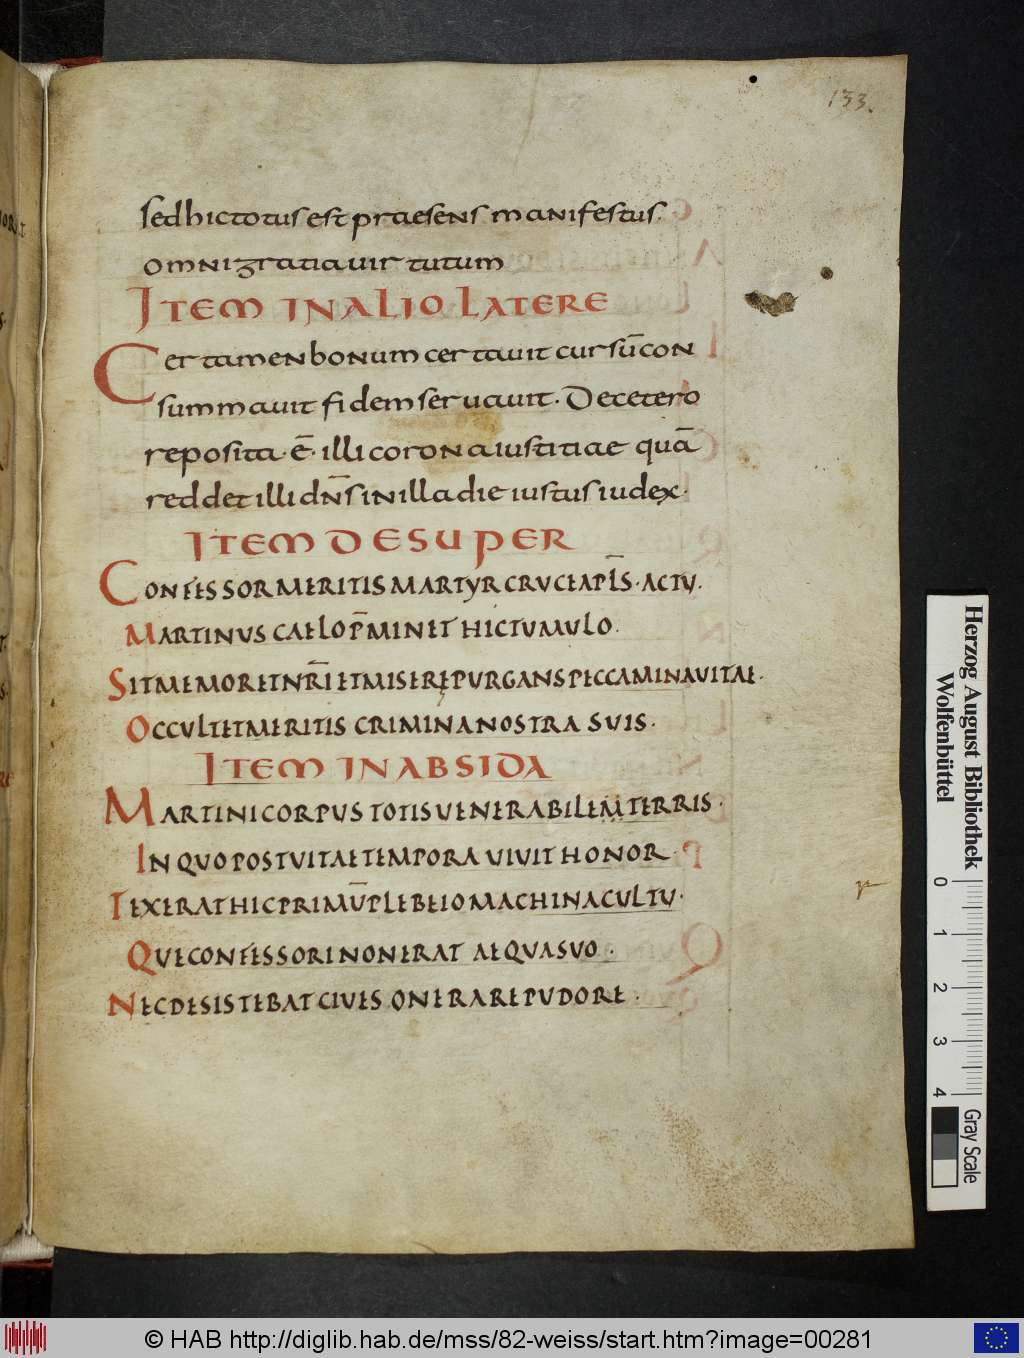 133.
sed hic totus est praesens manifestus
omni gratia virtutum
ITEM IN ALIO LATERE
Certamen bonum certavit cursū con
summavit fidem servavit. De cetero
reposita. ē. illi corona iustitiae quā
reddet illi dns̄ in illa die iustus iudex.
ITEM DESUPER
CONFESSOR MERITIS MARTYR CRUCE APL̄S. ACTU.
MARTINUS CAELO P̄MINET HIC TUMULO.
SIT MEMOR ET NR̄I ET MISERE PURGANS PECCAMINA VITAE.
OCCULTET MERITIS CRIMINA NOSTRA SUIS.
ITEM IN ABSIDA
MARTINI CORPUS TOTIS VENERABILEM TERRIS.
IN QUO POST VITAE TEMPORA VIVIT HONOR.
TEXERAT HIC PRIMŪ PLEBEIO MACHINA CULTU.
QUE CONFESSORI NON ERAT AEQUA SUO.
NEC DESISTEBAT CIVES ONERARE PUDORE.
Herzog August Bibliothek
Wolfenbüttel
0 1 2 3 4
Gray Scale
© HAB http://diglib.hab.de/mss/82-weiss/start.htm?image=00281